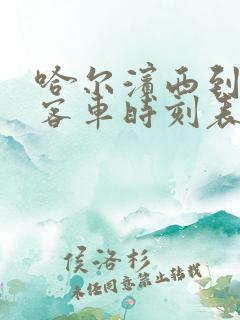 哈尔滨西到
客车时刻表
侯洛杉
未经同意禁止转载